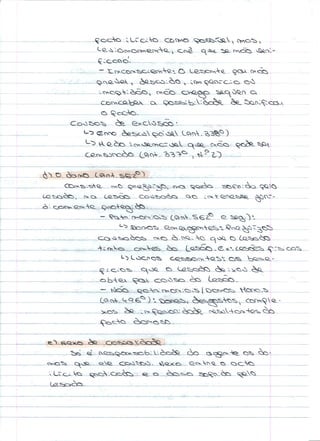 facto ilícito como possível, mas,
levianamente, crê que se não veri-
ficará.
- Inconsciente: O Lesante por não
prever, descuido, imperícia ou
inaptidão, não chega sequer a
conceber a possibilidade de Verificar
o facto.
Causas de exclusão:
↳ Erro desculpável (art. 338º)
↳ Medo invencível que não pode ser
censurado (art. 337º, nº2)
d) O dano (art. 562º)
Consiste no prejuízo, na perda sofrida pelo
lesado, na lesão causada ao interesse juri-
dicamente protegido.
- Patrimoniais (art. 562º e seg.):
↳ Danos emergentes: Prejuízos
causados no direito que o lesado
tinha antes da lesão. Ex.: lesões físicas
↳ Lucros cessantes: os bene-
fícios que o lesado deixou de
obter por causa da lesão.
- Não patrimoniais/Danos Morais
(art. 496º): dores, desgostos, comple-
xos de inferioridade resultantes do
facto danoso.
e) Nexo de causalidade
Só é responsabilidade do agente os da-
nos que ele causou. Nexo entre o acto
ilícito praticado e o dano sofrido pelo
lesado